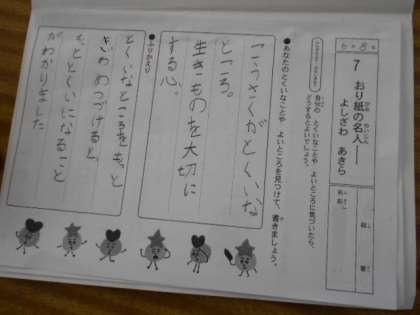 6月8日
7 おり紙の名人――
よしざわ あきら
組 番
名前
自分の とくいなことや よいところに気づいたら、
どうするとよいでしょう。
●あなたのとくいなことや よいところを見つけて、書きましょう。
こうさくがとくいな
ところ。
生きものを大切に
する心。
●ふりかえり
とくいなところをもっと
きわめつづけると、
もっととくいになること
がわかりました